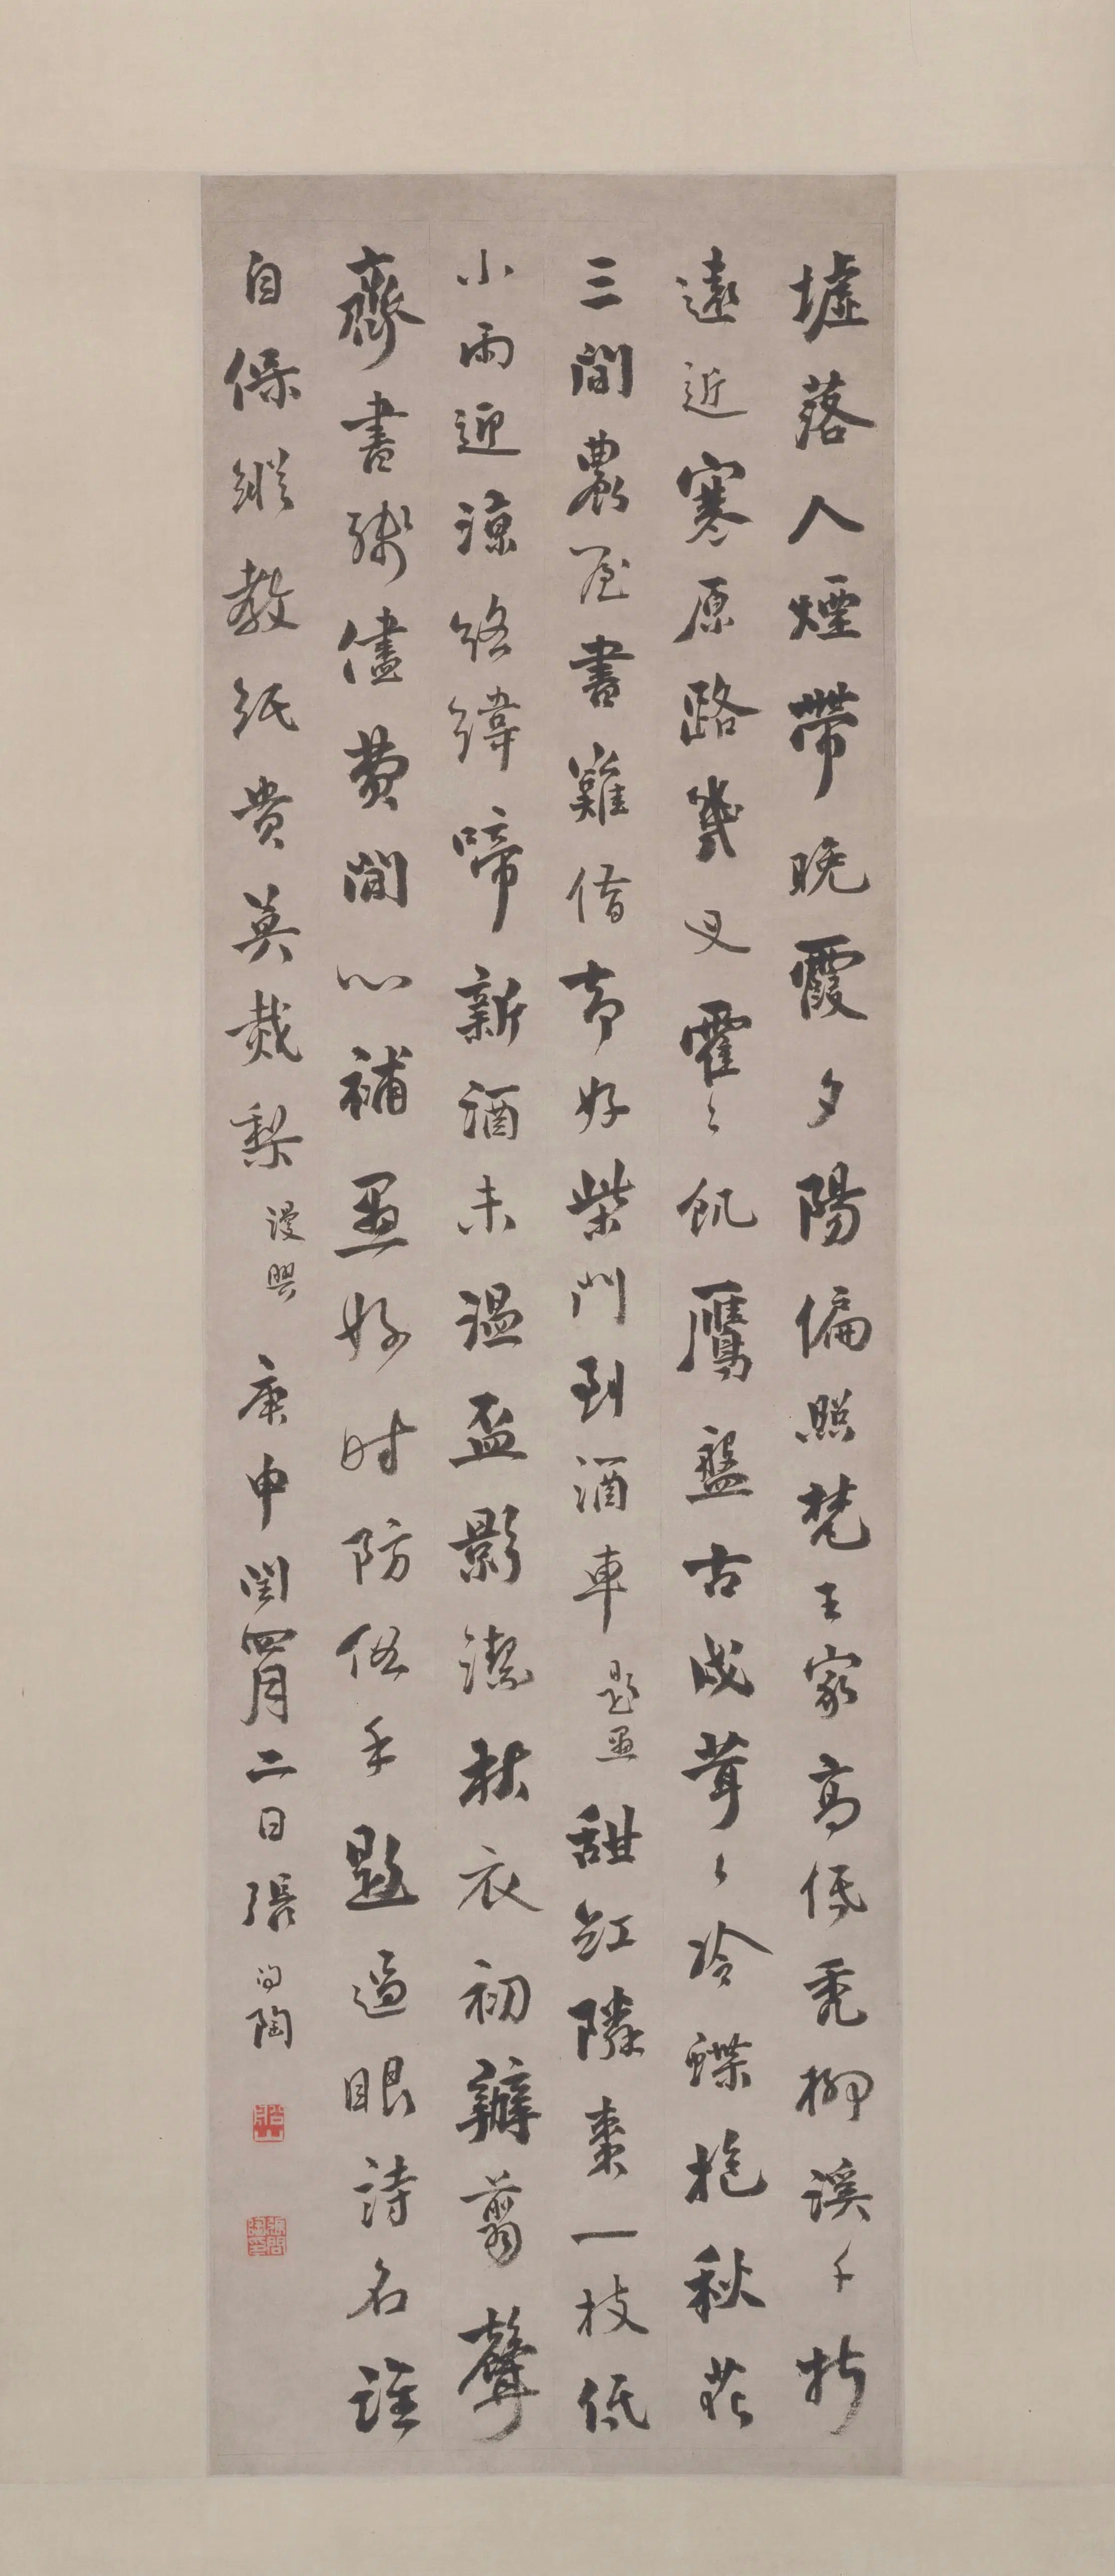 墟落人煙帶晚霞夕陽偏照梵王家高低禿柳溪千折
遠近寒原路幾叉霍〻飢鷹盤古戍茸〻冷蝶抱秋花
三間農屋書難借幸好柴門到酒車題畫甜紅隣棗一枝低
小雨迎涼絡緯啼新酒未溫盃影潔秋衣初辦翦聲
齊書殘儘費閒心補畫好時防俗手題過眼詩名誰
自保縱教紙貴莫災梨漫興庚申閏四月二日張問陶
船山
張問陶印